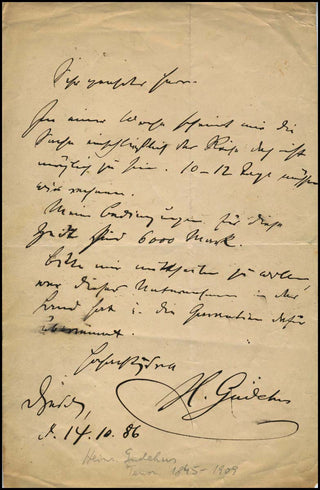 Sehr geehrter Herr.
In einer Woche scheint mir die
Sache einschließlich der Reise doch nicht
möglich zu sein. 10-12 Tage müßten
wir rechnen.
Meine Bedingungen für diese
Zeit sind 6000 Mark.
Bitte mir mittheilen zu wollen,
wer dieses Unternehmen in der
Hand hat u. die Garantien dafür
übernimmt.
Hochachtend
H. Gudehus
Dresden,
d. 14.10.86
Heinr. Gudehus
Tenor 1845-1909